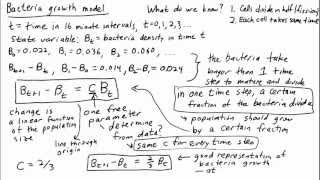 Bacteria growth model
What do we know?
1. Cells divide in half (fission)
2. Each cell takes same time
t = time in 16 minute intervals, t=0,1,2,3...
State variable: B_t = bacteria density in time t
B_0 = 0.022, B_1 = 0.036, B_2 = 0.060, ...
B_{t+1} - B_t, B_1 - B_0 = 0.014, B_2 - B_1 = 0.024
the bacteria take
longer than 1 time
step to mature and divide
B_{t+1} - B_t = c B_t
in one time step, a certain
fraction of the bacteria divide
population should grow
by a certain fraction
change is
a linear function
of the population
size
line through
origin
one free
parameter
determine
from data?
same c for every time step
C = 2/3
B_{t+1} - B_t = 2/3 B_t
good representation of
bacteria growth